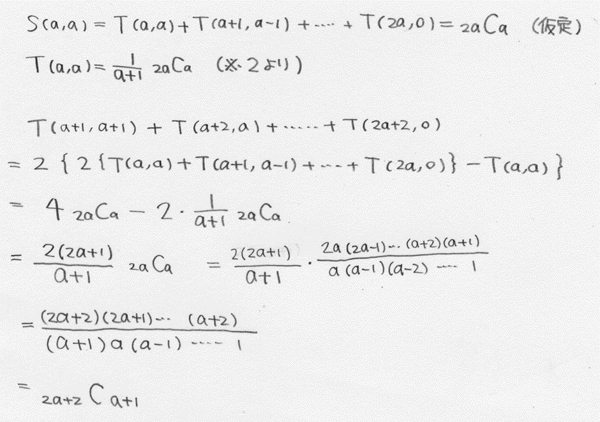 S(a,a) = T(a,a) + T(a+1, a-1) + ‥‥ + T(2a,0) = 2aCa (仮定)
T(a,a) = 1/(a+1) 2aCa (※2より)
T(a+1, a+1) + T(a+2, a) + ‥‥‥ + T(2a+2, 0)
= 2 { 2 {T(a,a) + T(a+1, a-1) + ‥‥ + T(2a,0)} - T(a,a) }
= 4 2aCa - 2 · 1/(a+1) 2aCa
= 2(2a+1)/(a+1) 2aCa = 2(2a+1)/(a+1) · 2a(2a-1)‥‥(a+2)(a+1)/a(a-1)(a-2)‥‥1
= (2a+2)(2a+1)‥‥(a+2)/(a+1)a(a-1)‥‥‥1
= 2a+2Ca+1